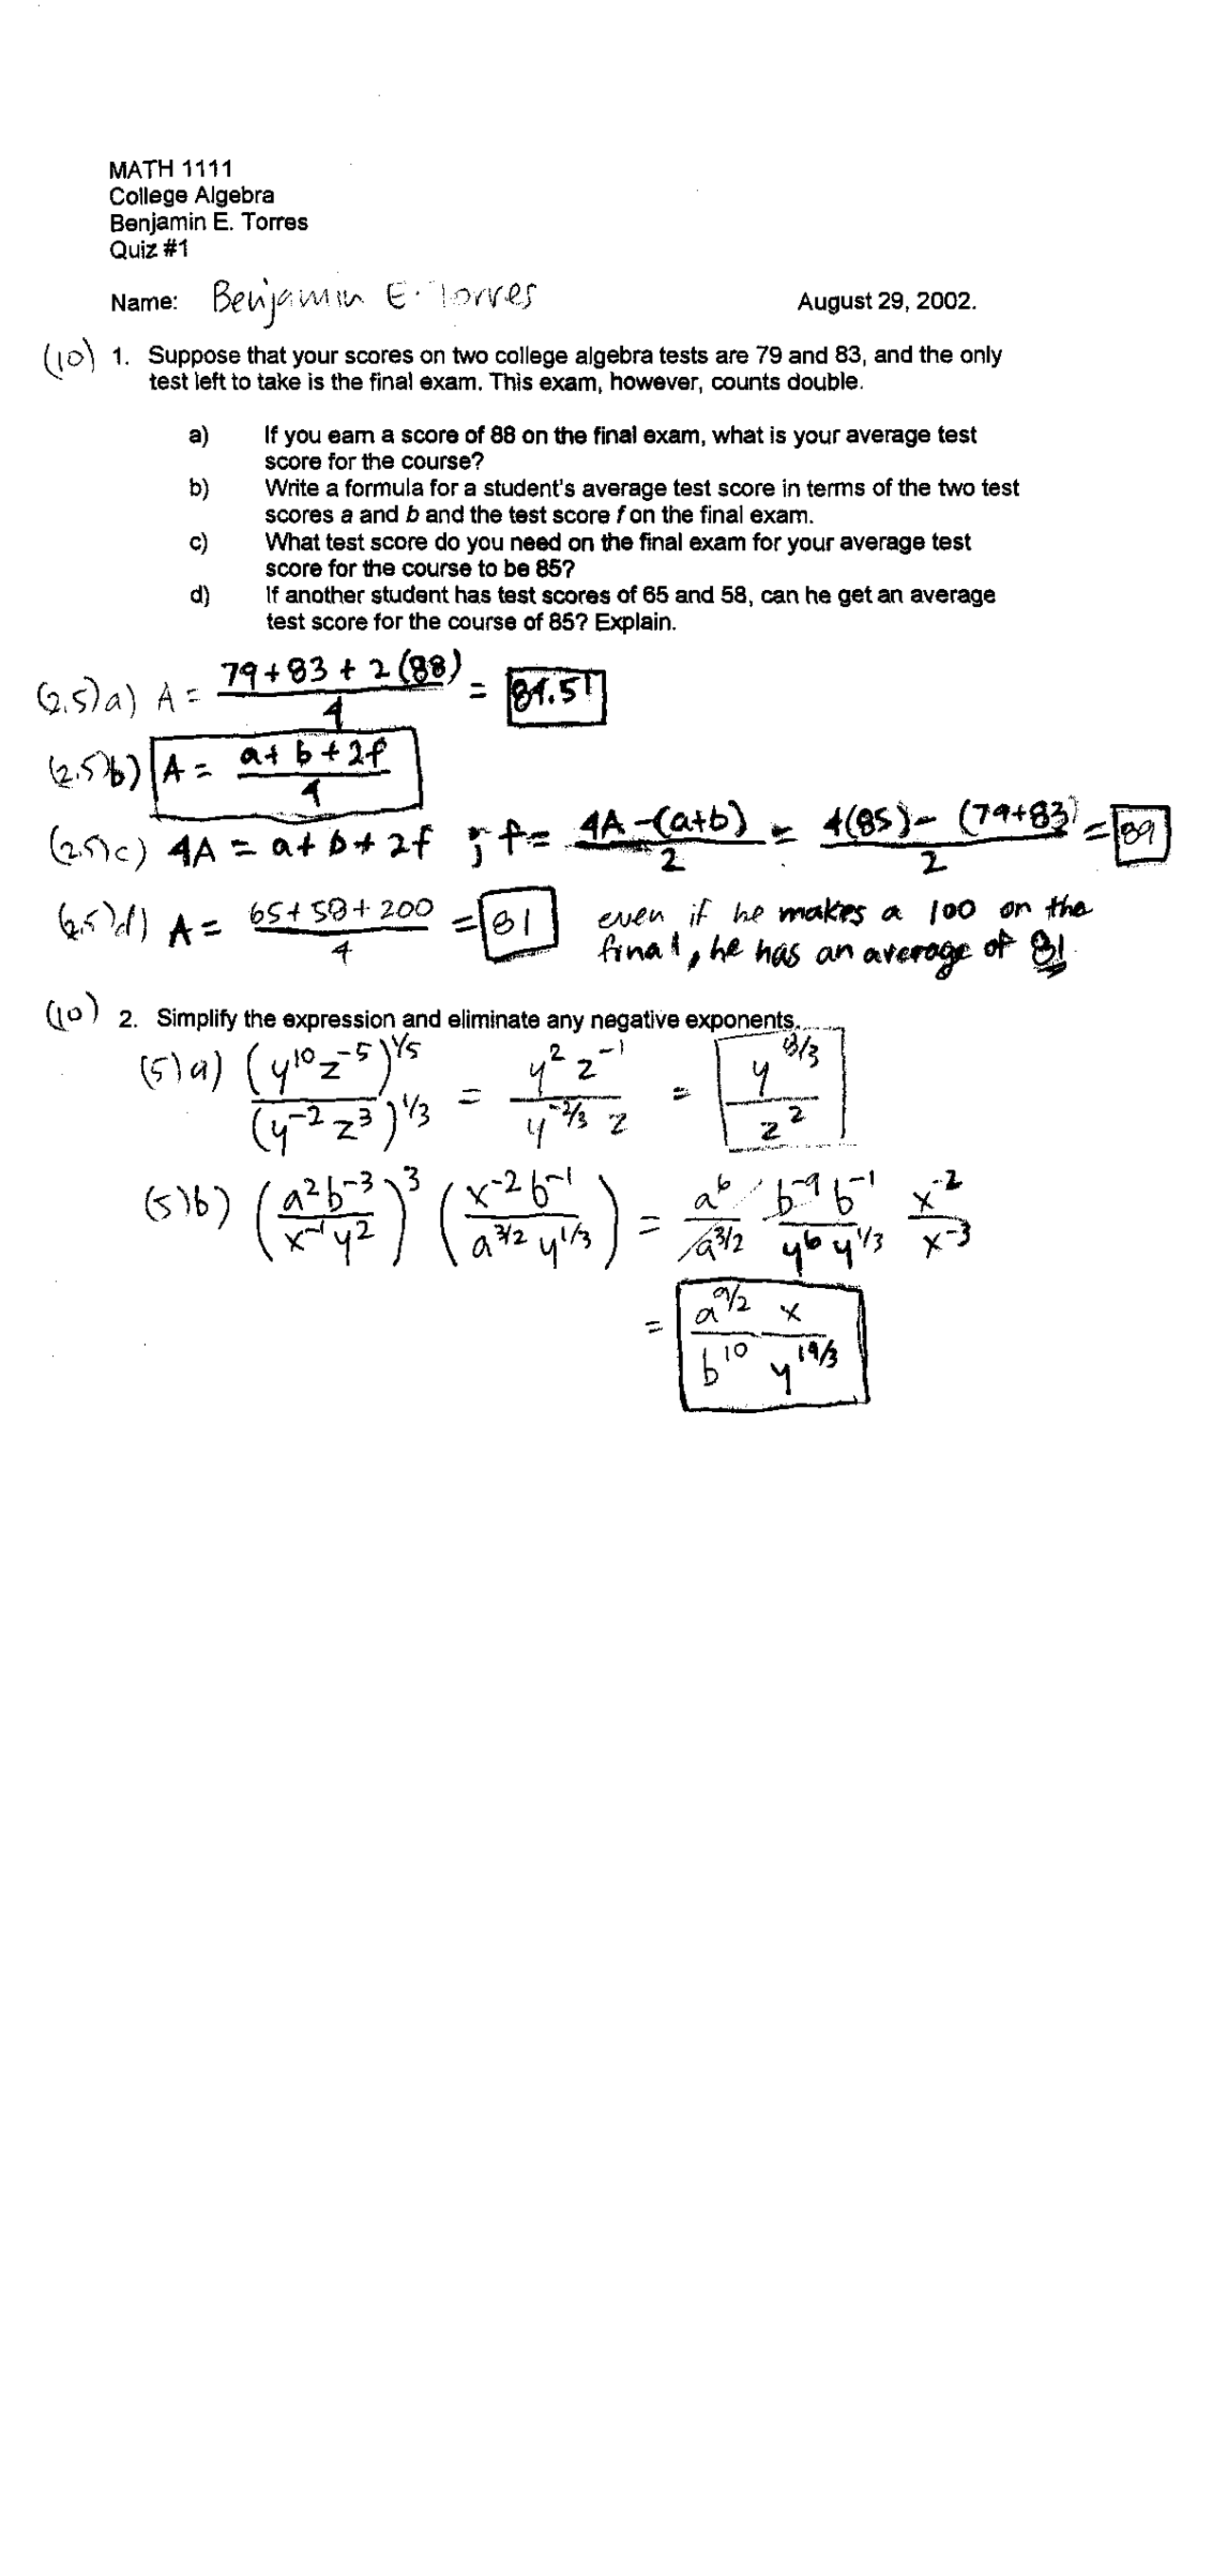 MATH 1111
College Algebra
Benjamin E. Torres
Quiz #1
Name: Benjamin E. Torres August 29, 2002.
(10) 1. Suppose that your scores on two college algebra tests are 79 and 83, and the only
test left to take is the final exam. This exam, however, counts double.
a) If you earn a score of 88 on the final exam, what is your average test
score for the course?
b) Write a formula for a student's average test score in terms of the two test
scores a and b and the test score f on the final exam.
c) What test score do you need on the final exam for your average test
score for the course to be 85?
d) If another student has test scores of 65 and 58, can he get an average
test score for the course of 85? Explain.
(2.5) a) A = (79 + 83 + 2(88))/4 = 84.5
(2.5) b) A = (a + b + 2f)/4
(2.5) c) 4A = a + b + 2f ; f = (4A - (a+b))/2 = (4(85) - (79+83))/2 = 89
(2.5) d) A = (65 + 58 + 200)/4 = 81 even if he makes a 100 on the
final, he has an average of 81.
(10) 2. Simplify the expression and eliminate any negative exponents.
(5) a) (y^10 z^-5)^1/5 / (y^-2 z^3)^1/3 = y^2 z^-1 / y^-2/3 z = y^8/3 / z^2
(5) b) (a^2 b^-3 / x^-1 y^2)^3 (x^-2 b^-1 / a^3/2 y^1/3) = a^6/a^3/2 b^-9 b^-1 / y^6 y^1/3 x^-2 / x^-3
= a^9/2 x / b^10 y^19/3